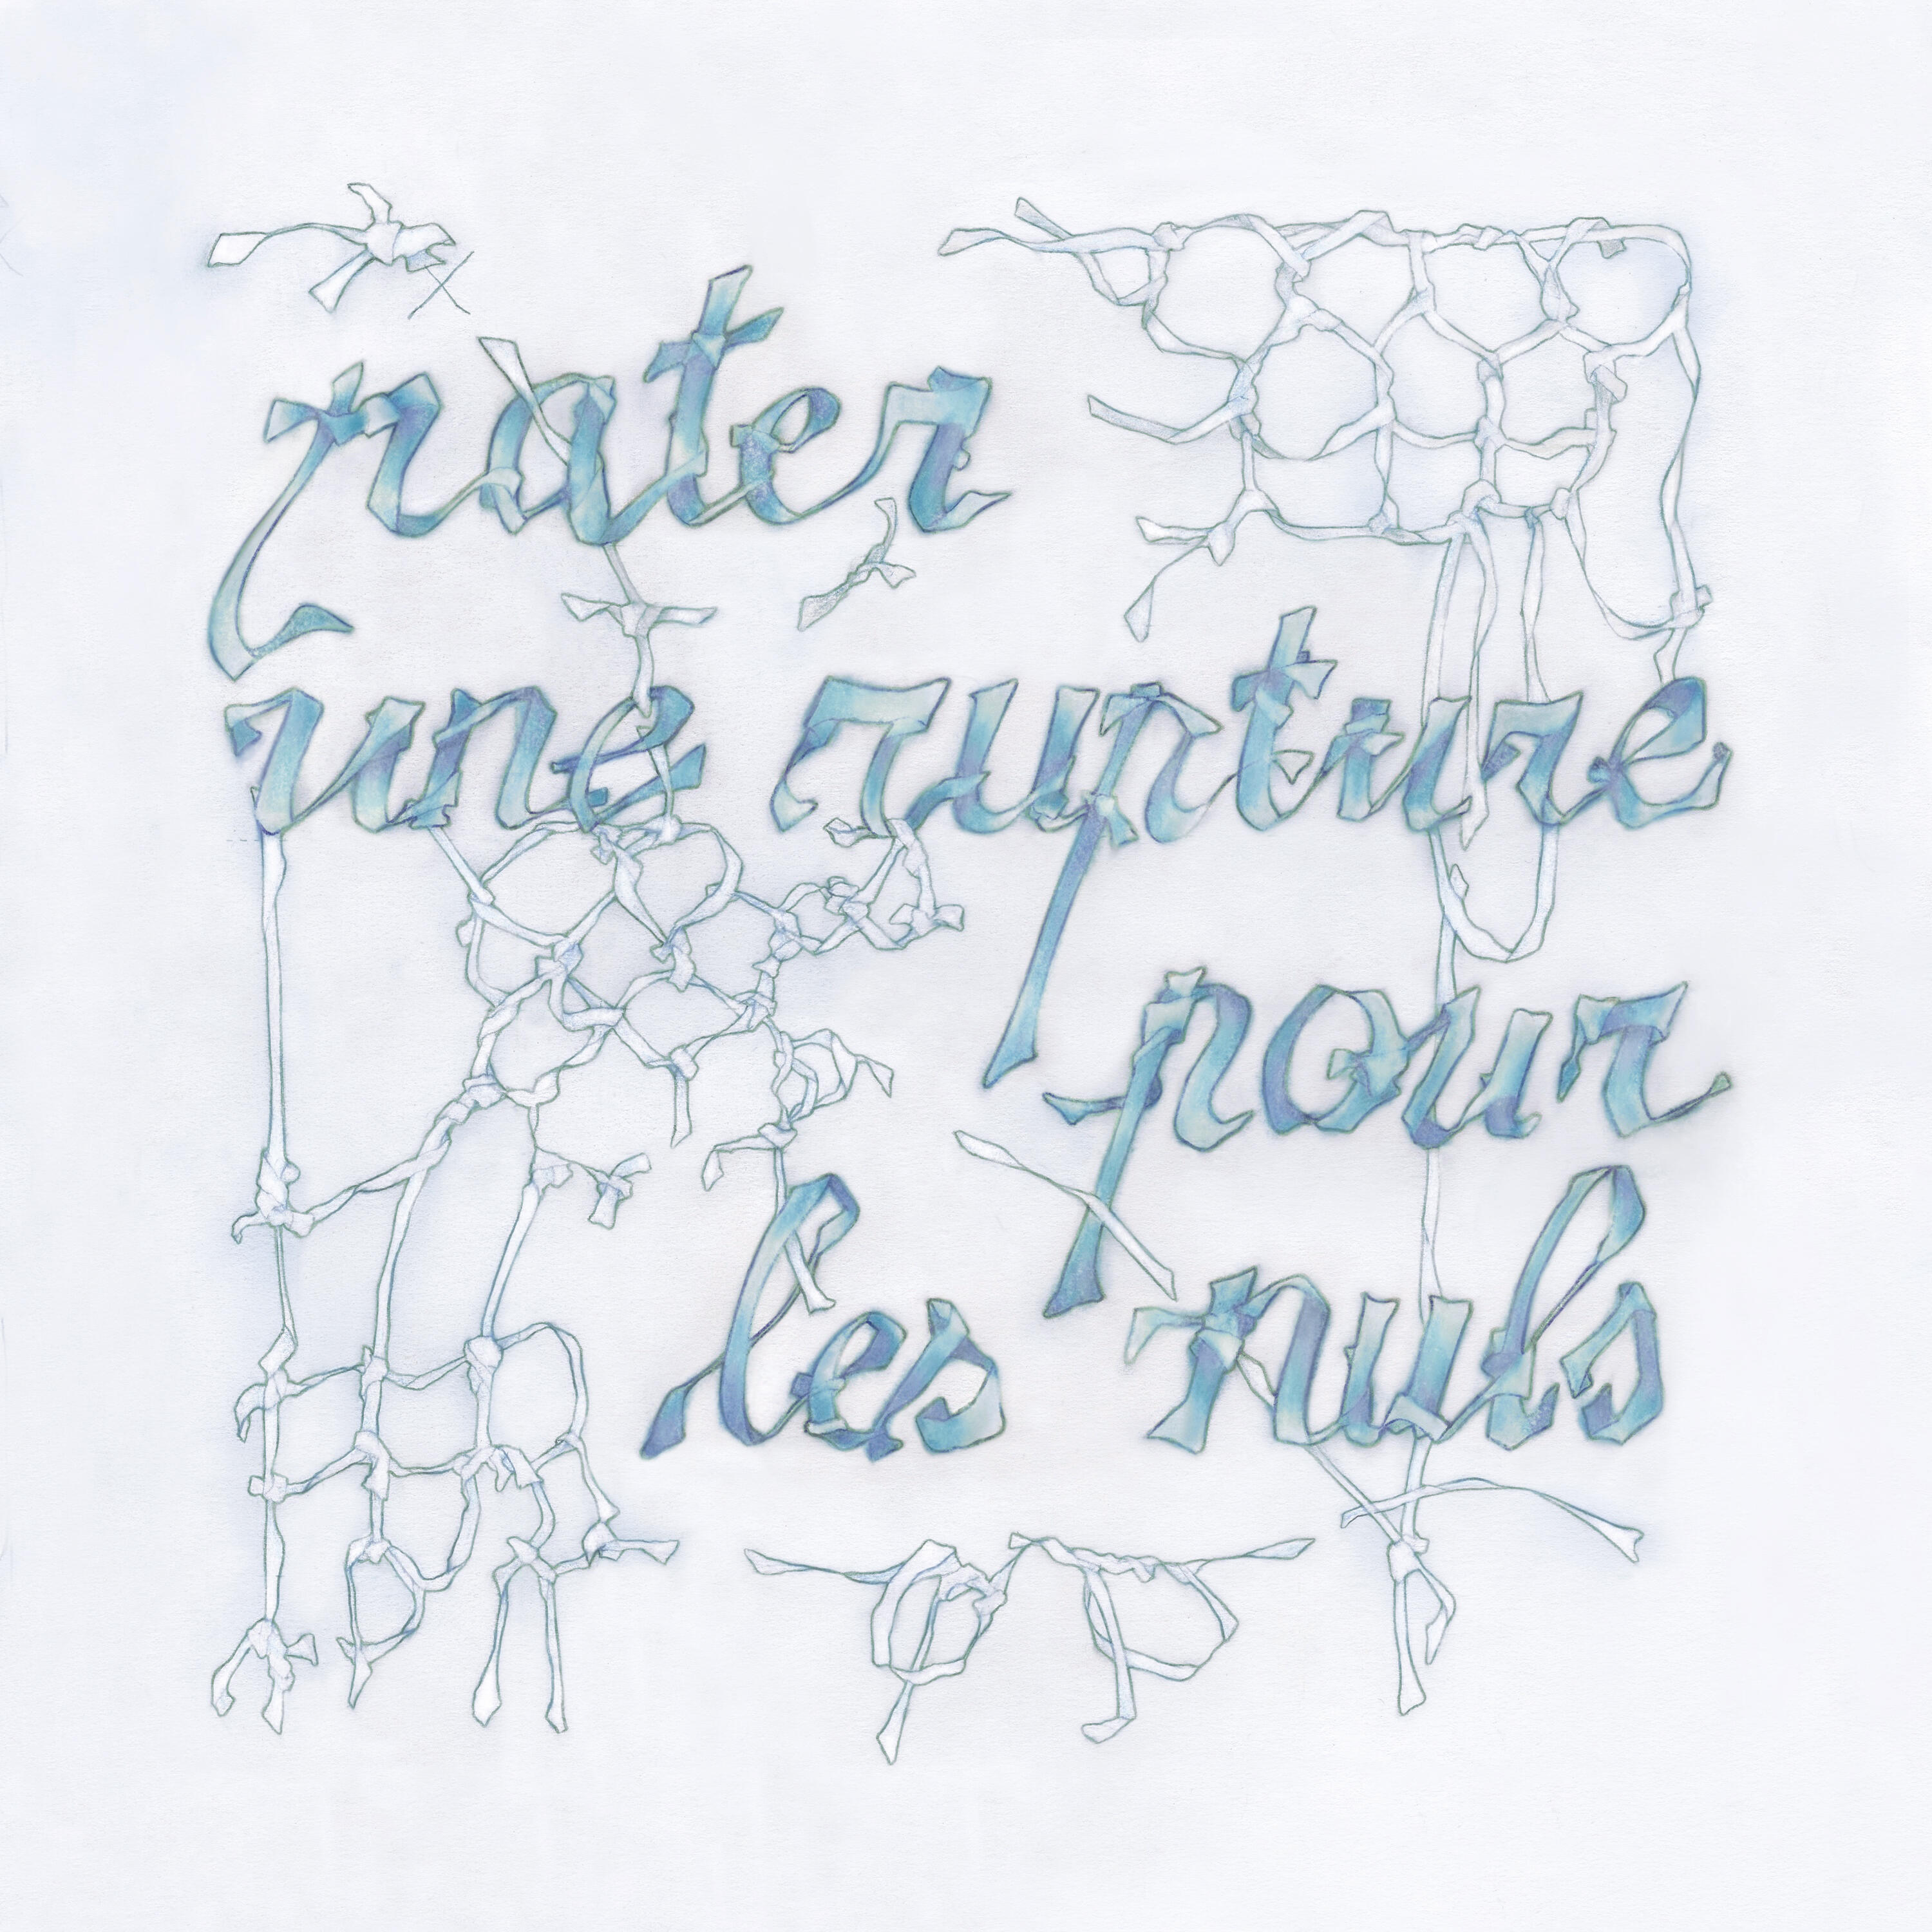 rater
une rupture
pour
les nuls